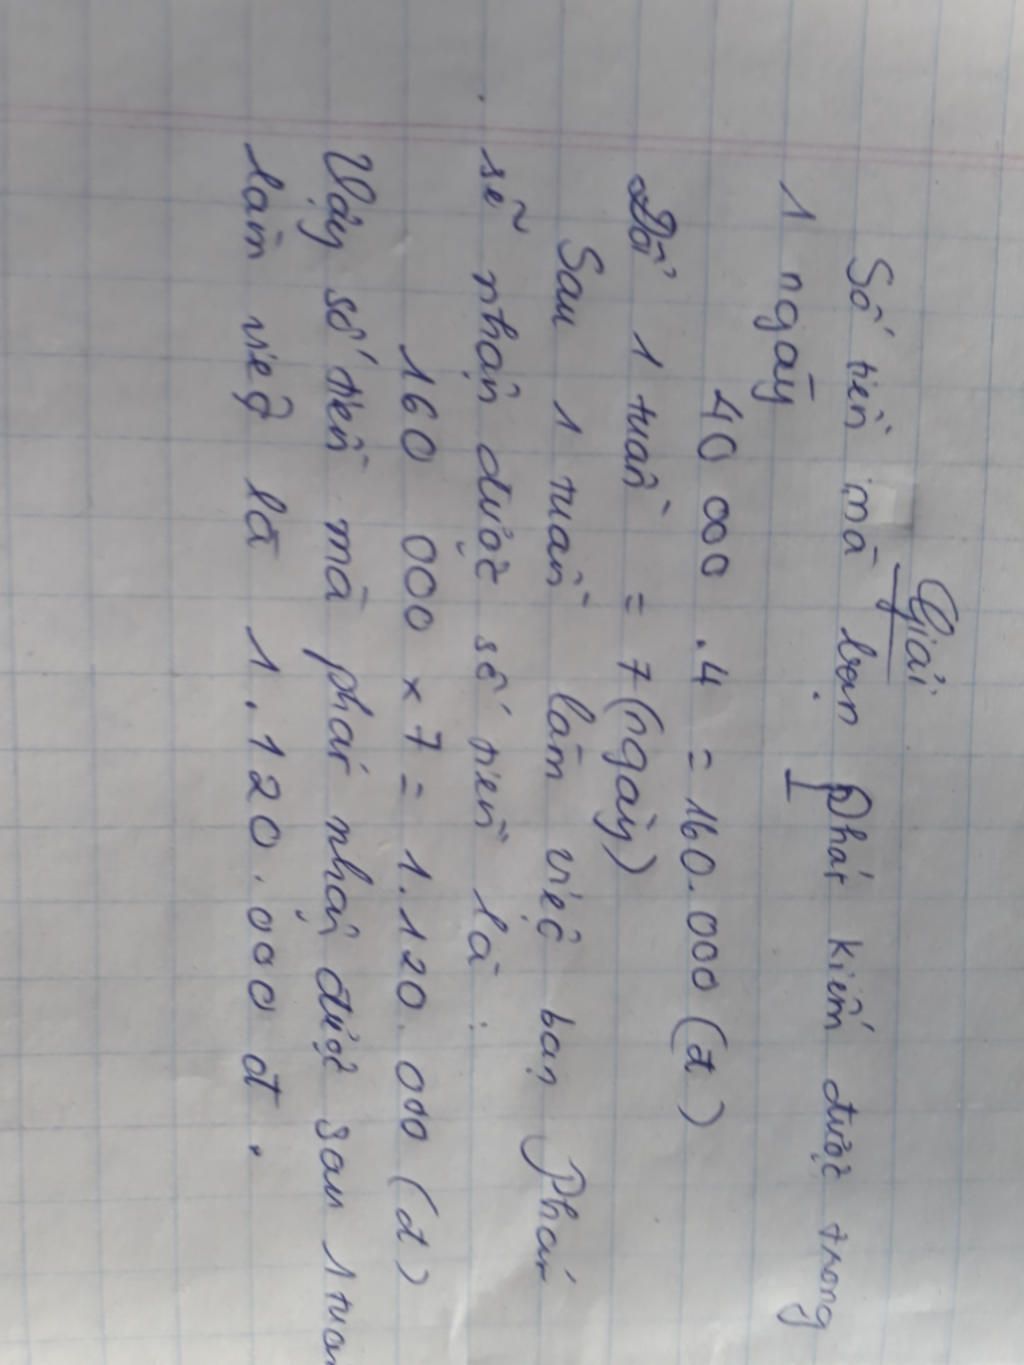 Giải
Số tiền mà bạn Phát kiếm được trong
1 ngày
40 000 . 4 = 160.000 (đ)
Đổi 1 tuần = 7 (ngày)
Sau 1 tuần làm việc bạn Phát
sẽ nhận được số tiền là :
160 000 x 7 = 1.120.000 (đ)
Vậy số tiền mà phát nhận được sau 1 tuần
làm việc là 1.120.000 đ.